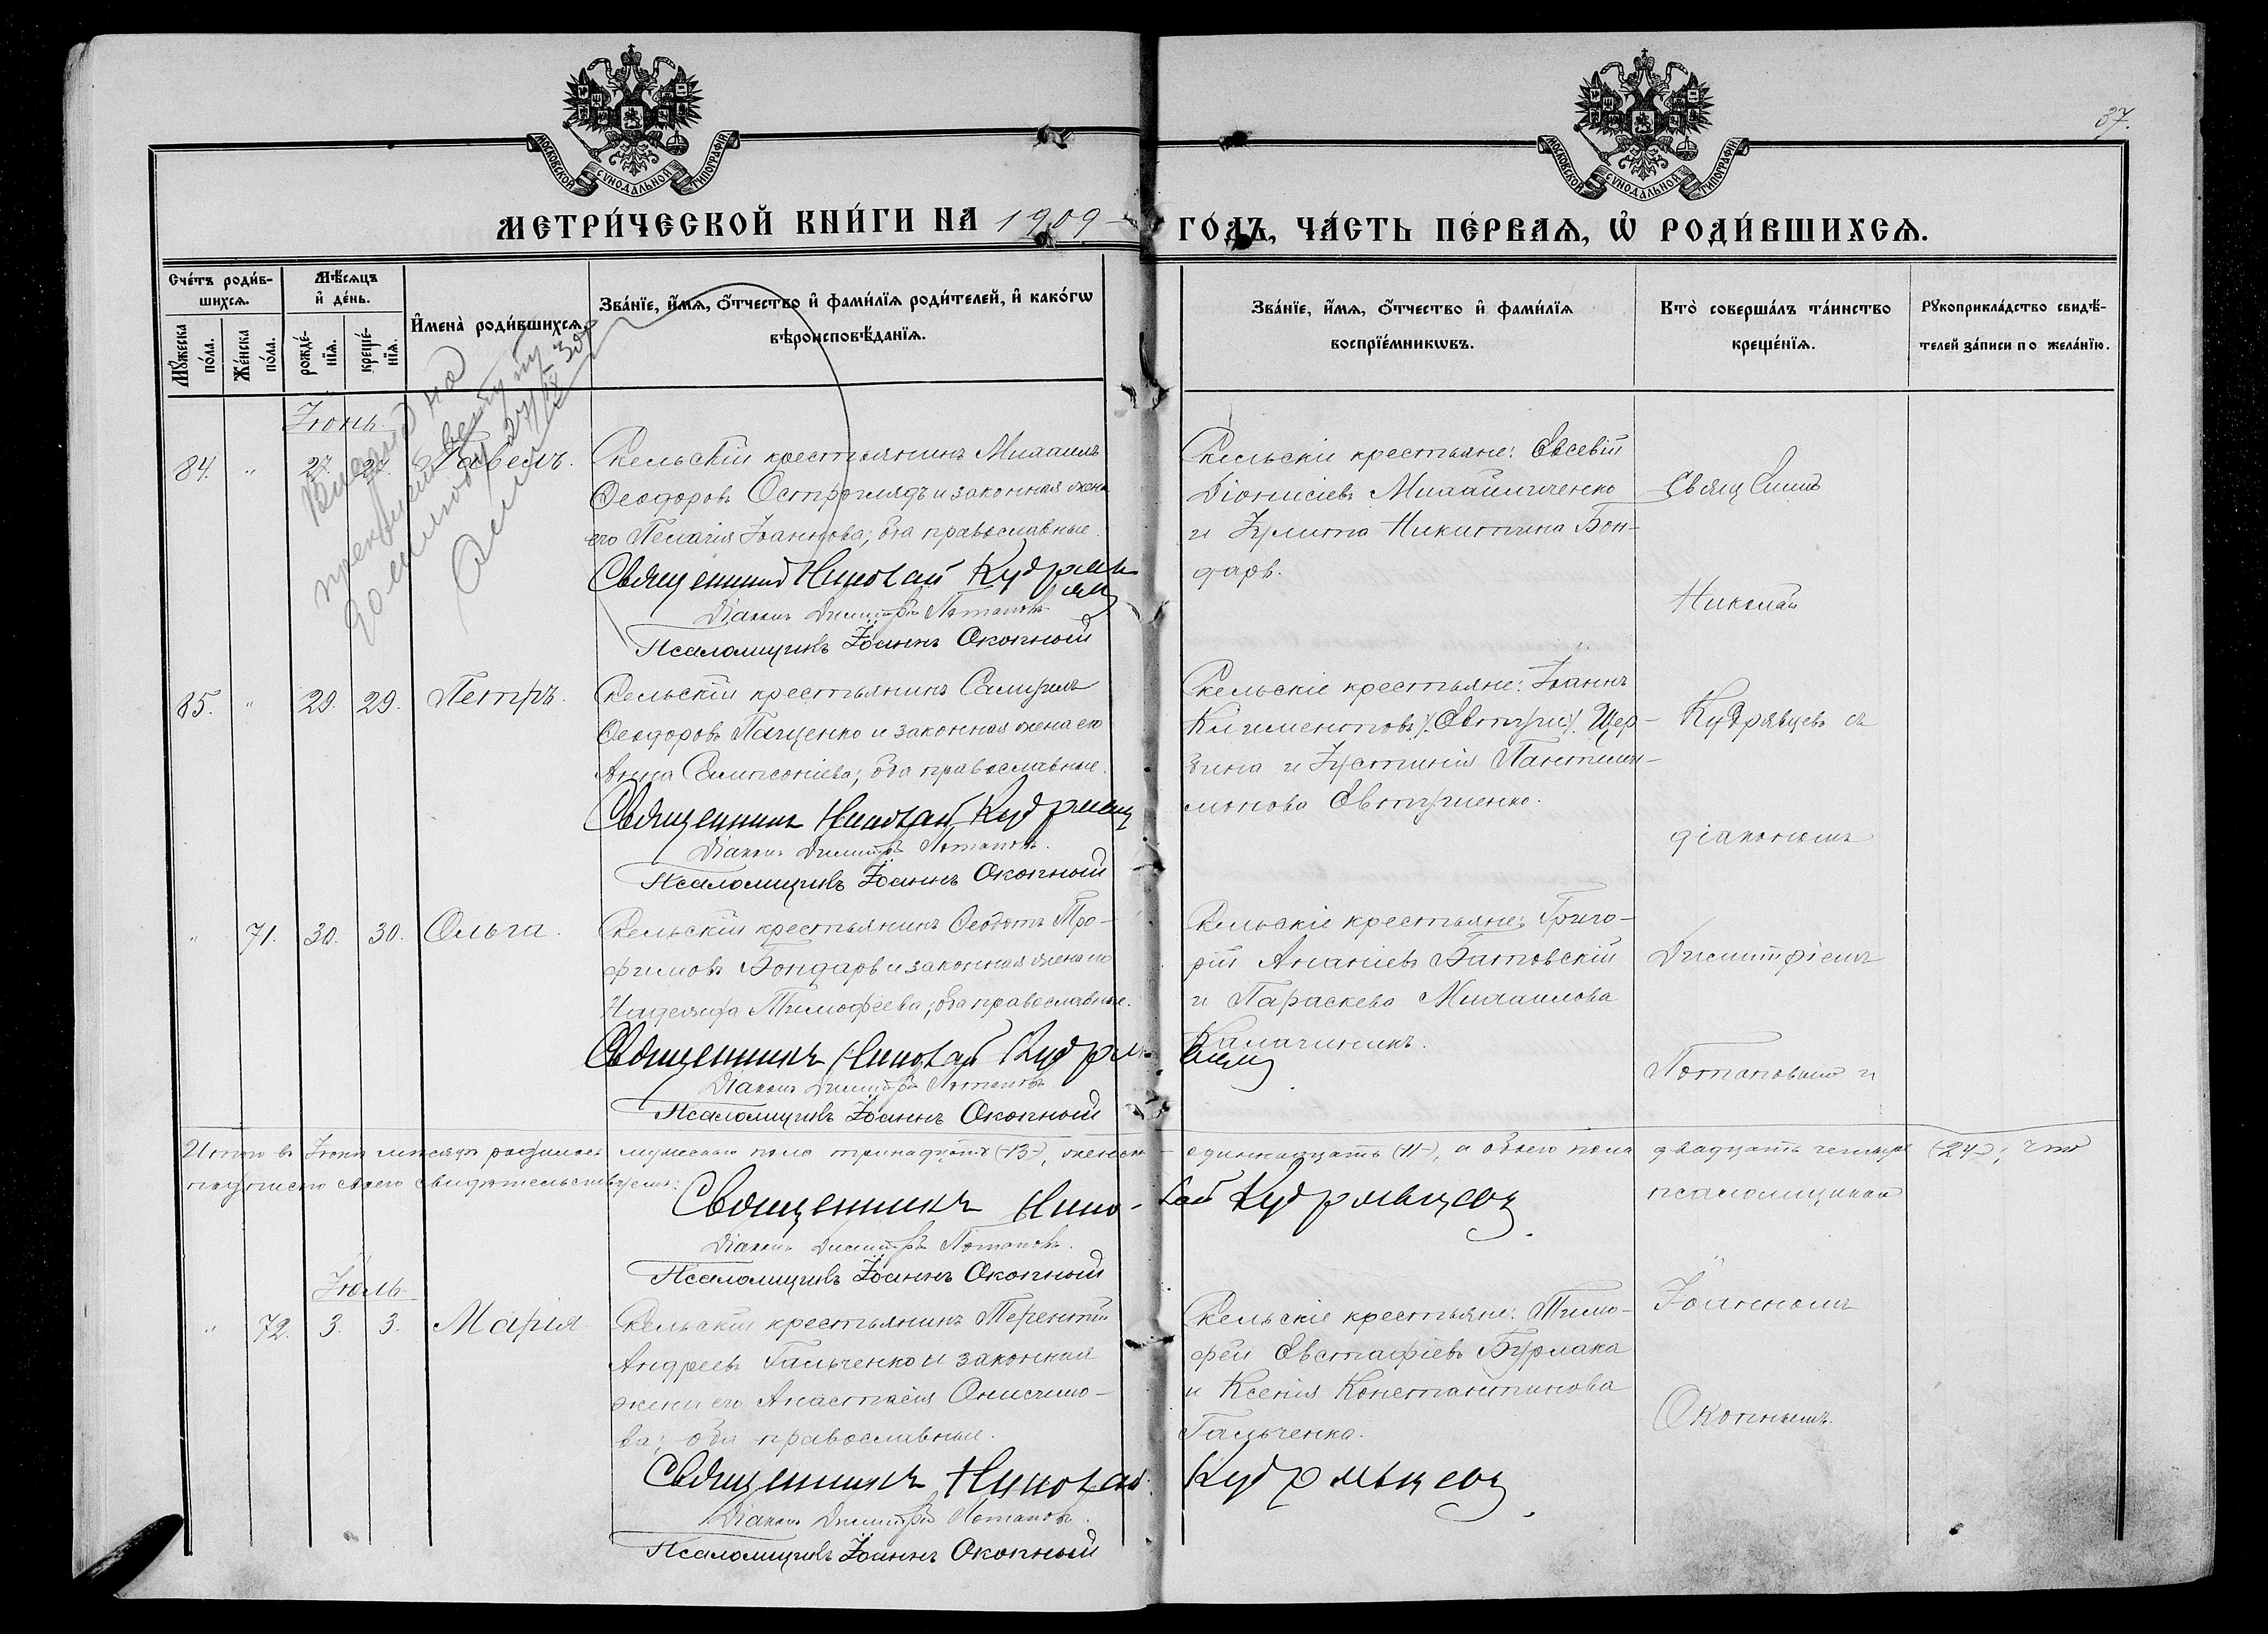 МОСКОВСКОЙ СУНОДАЛЬНОЙ ТИПОГРАФІИ
МОСКОВСКОЙ СУНОДАЛЬНОЙ ТИПОГРАФІИ
37.
МЕТРИ́ЧЕСКОЙ КНИ́ГИ НА 1909 ГО́ДЪ, ЧА́СТЬ ПЕ́РВАѦ, Ѡ҆ РОДИ́ВШИХСѦ.
Сче́тъ роди́в-
шихсѧ.
Мѣ́сѧцъ
и҆ де́нь.
Мꙋ́жеска
по́ла.
Же́нска
по́ла.
рожде́-
нїѧ.
креще́-
нїѧ.
И҆мена̀ роди́вшихсѧ.
Зва́нїе, и҆́мѧ, ѻ҆́тчество и҆ фами́лїѧ роди́телей, и҆ како́гѡ
вѣроисповѣ́данїѧ.
Зва́нїе, и҆́мѧ, ѻ҆́тчество и҆ фами́лїѧ
воспрїе́мникѡвъ.
Кто̀ соверша́лъ та́инство
креще́нїѧ.
Рꙋкоприкла́дство свидѣ́-
телей за́писи по жела́нїю.
Іюнь.
84. " 27. 27. Павелъ.
Скельскій крестьянинъ Михаилъ
Ѳеодоровъ Остроглядъ и законная жена
его Пелагія Іоаннова; оба православные.
Священникъ Николай Кудрявцевъ
Діаконъ Димитрій Потаповъ
Псаломщикъ Іоаннъ Окопный
Скельскіе крестьяне: Евсевій
Діонисіевъ Михайличенко
и Іулитта Никитина Бон-
дарь.
85. " 29. 29. Петръ.
Скельскій крестьянинъ Самуилъ
Ѳеодоровъ Пащенко и законная жена его
Анна Сампсоніева; оба православные.
Священникъ Николай Кудрявцевъ
Діаконъ Димитрій Потаповъ.
Псаломщикъ Іоаннъ Окопный
Скельскіе крестьяне: Іоаннъ
Климентовъ Щер-
бина и Іустинія Пантелей-
монова Евтушенко.
" 71. 30. 30. Ольга.
Скельскій крестьянинъ Ѳеодотъ Тро-
фимовъ Бондарь и законная жена его
Надежда Тимофеева; оба православные.
Священникъ Николай Кудрявцевъ
Діаконъ Димитрій Потаповъ
Псаломщикъ Іоаннъ Окопный
Скельскіе крестьяне: Григо-
рій Ананіевъ Батовскій
и Параскева Михаилова
Калачникъ.
Итого въ Іюнѣ мѣсяцѣ родилось мужескаго пола тринадцать (13), женска- одиннадцать (11), а обоего пола двадцать четыре (24); что
подписью своею свидѣтельствуемъ:
Священникъ Николай Кудрявцевъ.
Діаконъ Димитрій Потаповъ.
Псаломщикъ Іоаннъ Окопный
Іюль
" 72. 3. 3. Марія.
Скельскій крестьянинъ Терентій
Андреевъ Гальченко и законная
жена его Анастасія Онисимо-
ва; оба православные.
Священникъ Николай Кудрявцевъ.
Діаконъ Димитрій Потаповъ.
Псаломщикъ Іоаннъ Окопный
Скельскіе крестьяне: Тимо-
фей Евстафіевъ Бурлака
и Ксенія Константинова
Гальченко.
Николай
Кудрявцевъ съ
діакономъ
Димитріемъ
Потаповымъ и
псаломщикомъ
Іоанномъ
Окопнымъ.